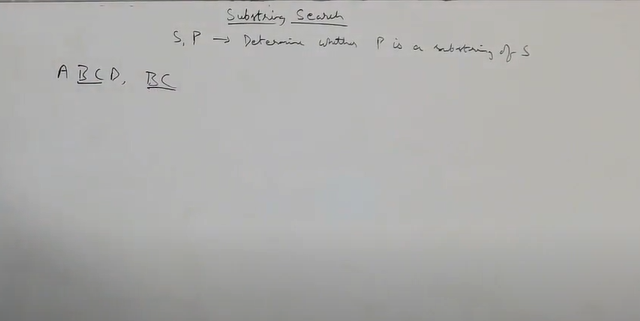 Substring Search
S, P → Determine whether P is a substring of S
A B C D, BC